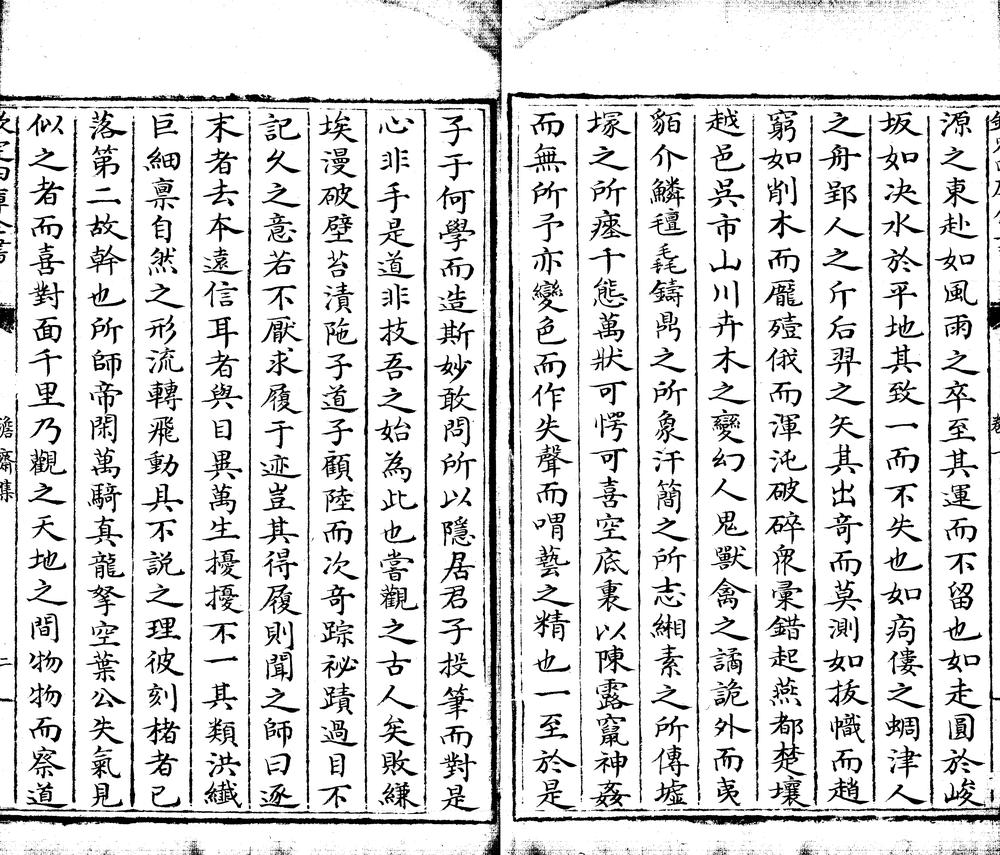 源之東赴如風雨之卒至其運而不留也如走圓於峻
坂如决水於平地其致一而不失也如疴僂之蜩津人
之舟郢人之斤后羿之矢其出竒而莫測如拔幟而趙
窮如削木而龐殪俄而渾沌破碎衆彚錯起燕都楚壤
越邑吳市山川卉木之變幻人鬼獸禽之譎詭外而夷
貊介鱗氊毳鑄鼎之所象汗簡之所志緗素之所傳墟
塜之所瘞千態萬狀可愕可喜空底裏以陳露竄神姦
而無所予亦變色而作失聲而喟藝之精也一至於是
子于何學而造斯妙敢問所以隱居君子投筆而對是
心非手是道非技吾之始為此也嘗觀之古人矣敗縑
埃漫破壁苔漬陁子道子顧陸而次竒踪祕蹟過目不
記久之意若不厭求履于迹豈其得履則聞之師曰逐
末者去本逺信耳者與目異萬生擾擾不一其類洪纎
巨細禀自然之形流轉飛動具不説之理彼刻楮者已
落第二故幹也所師帝閑萬騎真龍拏空葉公失氣見
似之者而喜對面千里乃觀之天地之間物物而察道
欽定四庫全書
澹齋集
二